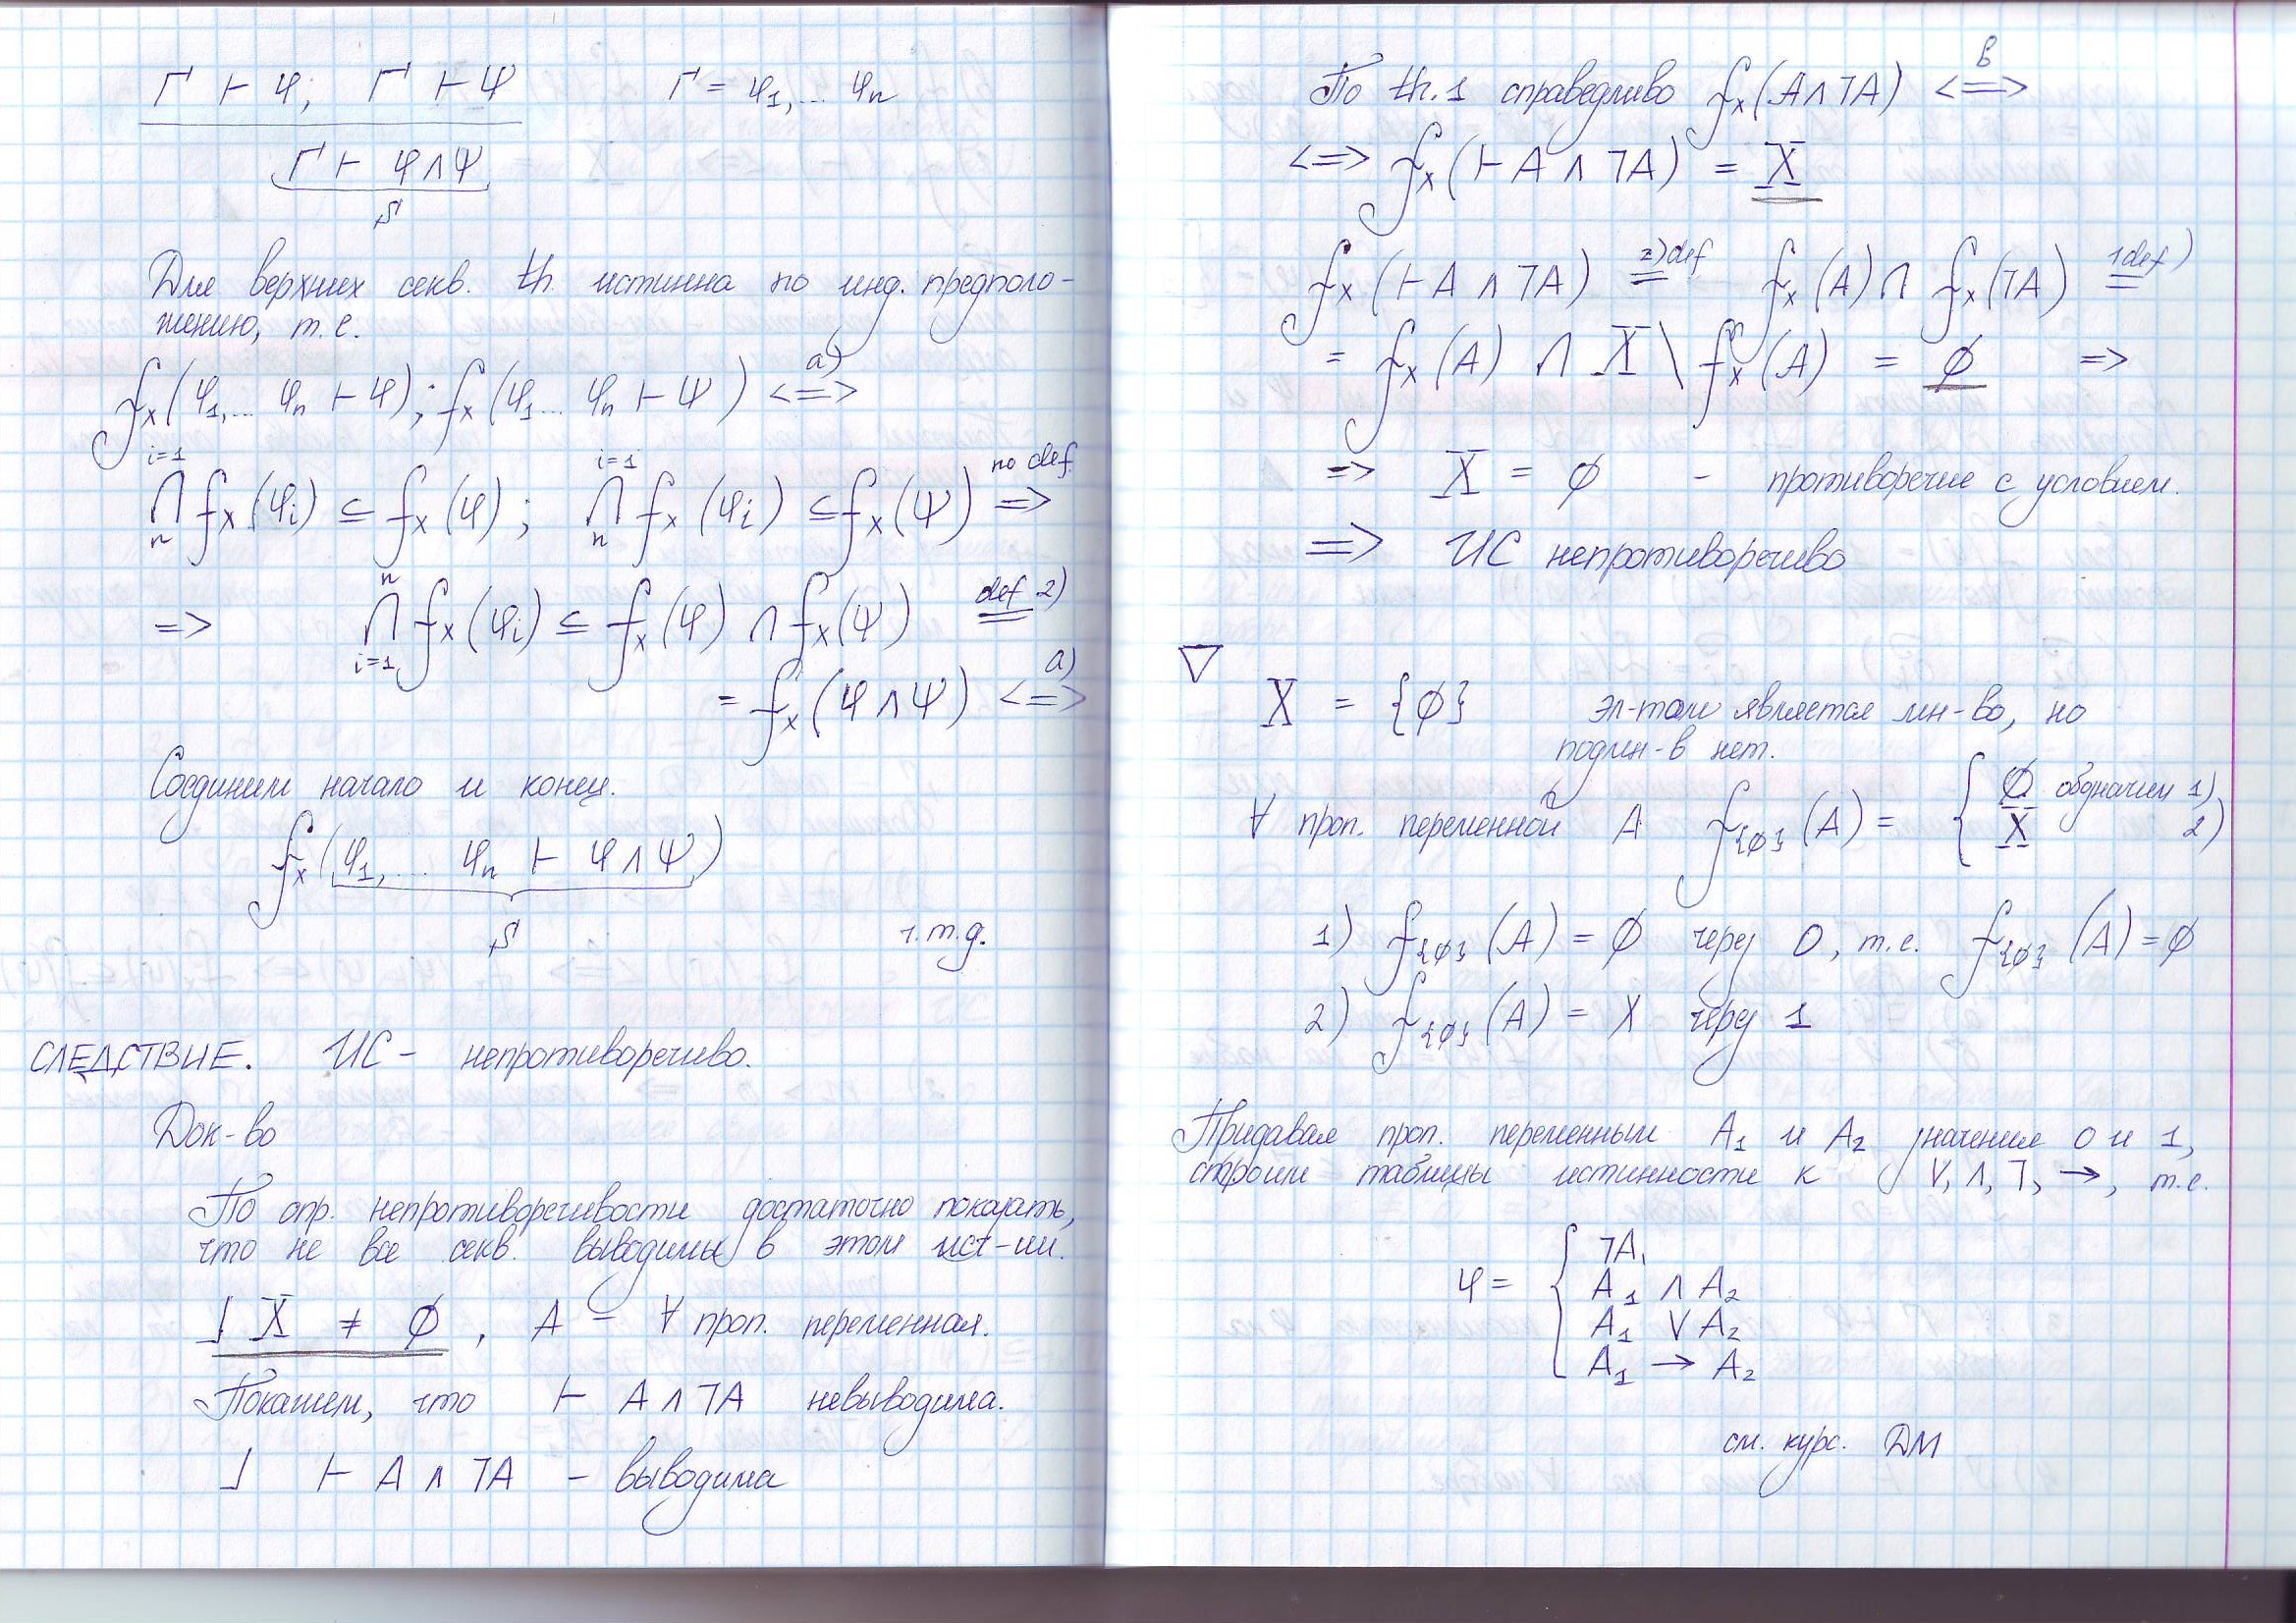 Г ⊢ φ; Г ⊢ Ψ Г = φ₁,... φₙ
Г ⊢ φ∧Ψ
S
Для верхних секв. th. истинна по инд. предполо-
жению, т.е.
fₓ(φ₁,... φₙ ⊢ φ); fₓ(φ₁... φₙ ⊢ Ψ) <=> а)
i=1 i=1 по def.
⋂ fₓ(φᵢ) ⊆ fₓ(φ); ⋂ fₓ(φᵢ) ⊆ fₓ(Ψ) =>
n n
n
=> ⋂ fₓ(φᵢ) ⊆ fₓ(φ) ∩ fₓ(Ψ) = def 2)
i=1
= fₓ(φ∧Ψ) <=> а)
Соединим начало и конец.
fₓ(φ₁,... φₙ ⊢ φ∧Ψ)
S
ч.т.д.
СЛЕДСТВИЕ. ИС - непротиворечиво.
Док-во
По опр. непротиворечивости достаточно показать,
что не все секв. выводимы в этом исч-ии.
⅃ X ≠ ∅, A - ∀ проп. переменная.
Покажем, что ⊢ A∧¬A невыводима.
⅃ ⊢ A∧¬A - выводима
По th.1 справедливо fₓ(A∧¬A) <=> в
<=> fₓ(⊢ A∧¬A) = X
fₓ(⊢A∧¬A) = 2)def fₓ(A) ∩ fₓ(¬A) = 1def)
= fₓ(A) ∩ X \ fₓ(A) = ∅ =>
=> X = ∅ - противоречие с условием.
=> ИС непротиворечиво
▽
X = {∅} эл-том является мн-во, но
подмн-в нет.
∀ проп. переменной A f{∅}(A) = { ∅ обозначим 1)
X 2)
1) f{∅}(A) = ∅ через 0, т.е. f{∅}(A) = ∅
2) f{∅}(A) = X через 1
Придавая проп. переменным A₁ и A₂ значения 0 и 1,
строим таблицы истинности к ∨, ∧, ¬, →, т.е.
φ = { ¬A₁
A₁ ∧ A₂
A₁ ∨ A₂
A₁ → A₂
см. курс. ДМ